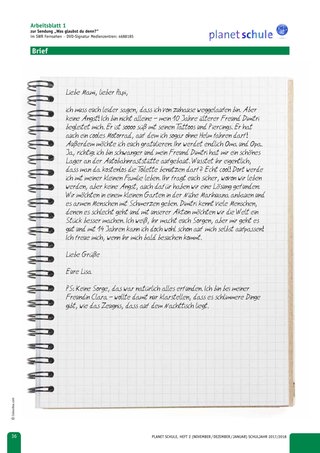 Arbeitsblatt 1
zur Sendung „Was glaubst du denn?“
im SWR Fernsehen · DVD-Signatur Medienzentren: 4688185
planet schule
Brief
Liebe Mami, lieber Papi,
ich muss euch leider sagen, dass ich von zuhause weggelaufen bin. Aber
keine Angst! Ich bin nicht alleine – mein 10 Jahre älterer Freund Dimitri
begleitet mich. Er ist soooo süß mit seinen Tattoos und Piercings. Er hat
auch ein cooles Motorrad, auf dem ich sogar ohne Helm fahren darf!
Außerdem möchte ich euch gratulieren: Ihr werdet endlich Oma und Opa.
Ja, richtig, ich bin schwanger und mein Freund Dimitri hat mir ein schönes
Lager an der Autobahnraststätte aufgebaut. Wusstet ihr eigentlich,
dass man da kostenlos die Toilette benützen darf? Echt cool! Dort werde
ich mit meiner kleinen Familie leben. Ihr fragt euch sicher, wovon wir leben
werden, aber keine Angst, auch dafür haben wir eine Lösung gefunden:
Wir möchten in einem kleinen Garten in der Nähe Marihuana anbauen und
es armen Menschen mit Schmerzen geben. Dimitri kennt viele Menschen,
denen es schlecht geht und mit unserer Aktion möchten wir die Welt ein
Stück besser machen. Ich weiß, ihr macht euch Sorgen, aber mir geht es
gut und mit 14 Jahren kann ich doch wohl schon auf mich selbst aufpassen!
Ich freue mich, wenn ihr mich bald besuchen kommt.
Liebe Grüße
Eure Lisa.
PS: Keine Sorge, das war natürlich alles erfunden. Ich bin bei meiner
Freundin Clara – wollte damit nur klarstellen, dass es schlimmere Dinge
gibt, wie das Zeugnis, dass auf dem Nachttisch liegt.
36
PLANET SCHULE, HEFT 2 (NOVEMBER/DEZEMBER/JANUAR) SCHULJAHR 2017/2018